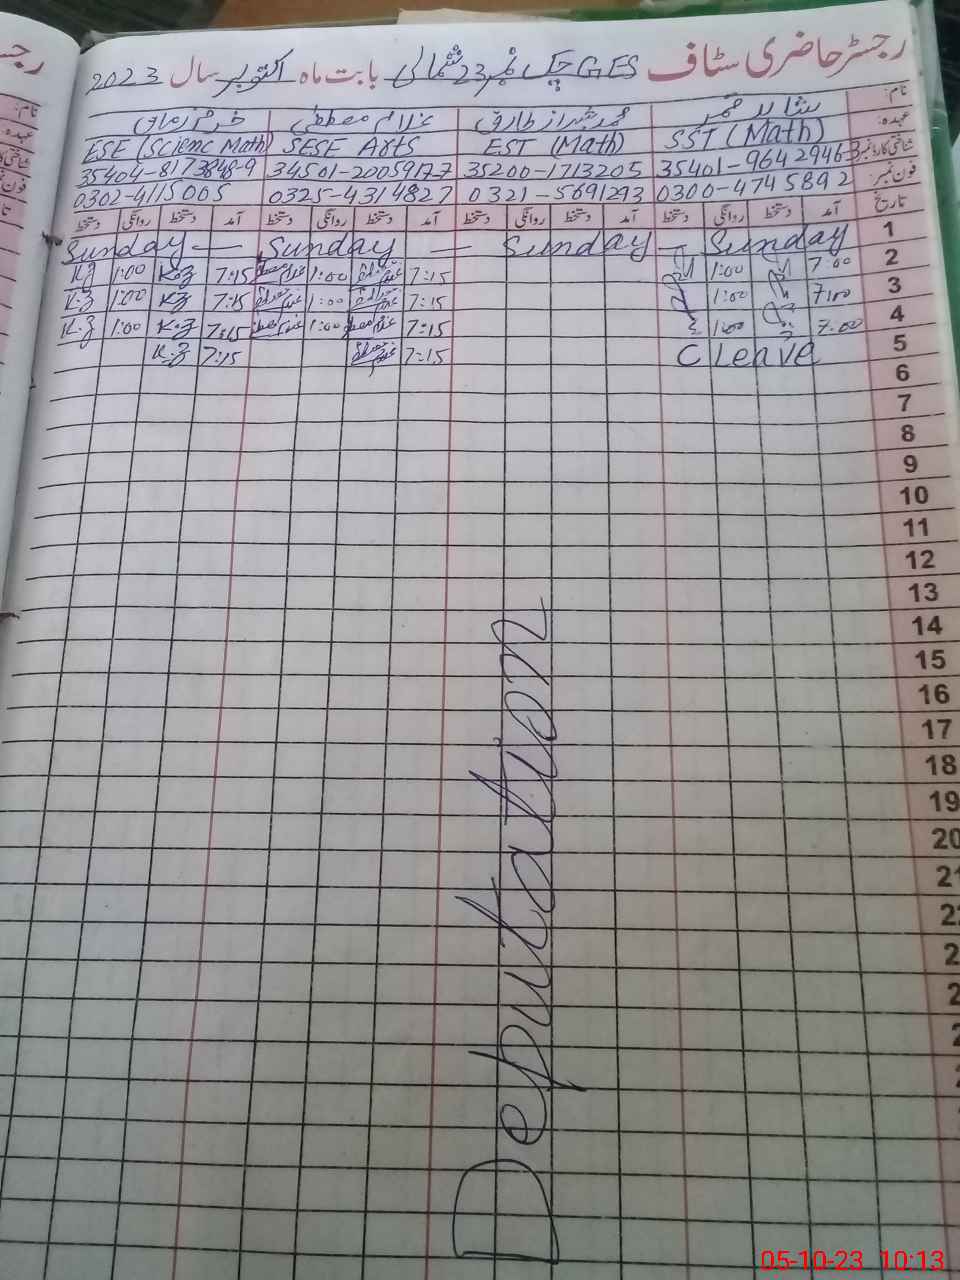 رجسٹر حاضری سٹاف GES چک نمبر 23 شمالی بابت ماہ اکتوبر سال 2023
نام: شاہد عمر محمد شیراز طارق غلام مصطفی خرم زمان
عہدہ: SST (Math) EST (Math) SESE Arts ESE (Scienc Math)
شناختی کارڈ نمبر 35401-9642946-3 35200-1713205 34501-20059177 35404-8173848-9
فون نمبر: 0300-4745892 0321-5691293 0325-4314827 0302-4115005
تاریخ آمد دستخط روانگی دستخط آمد دستخط روانگی دستخط آمد دستخط روانگی دستخط آمد دستخط روانگی دستخط
1 Sunday — Sunday — Sunday — Sunday
2 7:00 1:00 7:15 1:00 7:15 K.Z 1:00 KZ
3 7:00 1:00 7:15 1:00 7:15 KZ 1:00 K.Z
4 7:00 1:00 7:15 1:00 7:15 K.Z 1:00 K.Z
5 C Leave 7:15 7:15 K.Z
6
7
8
9
10
11
12
13
14
15
16
17
18
19
20
Deputation
05-10-23 10:13